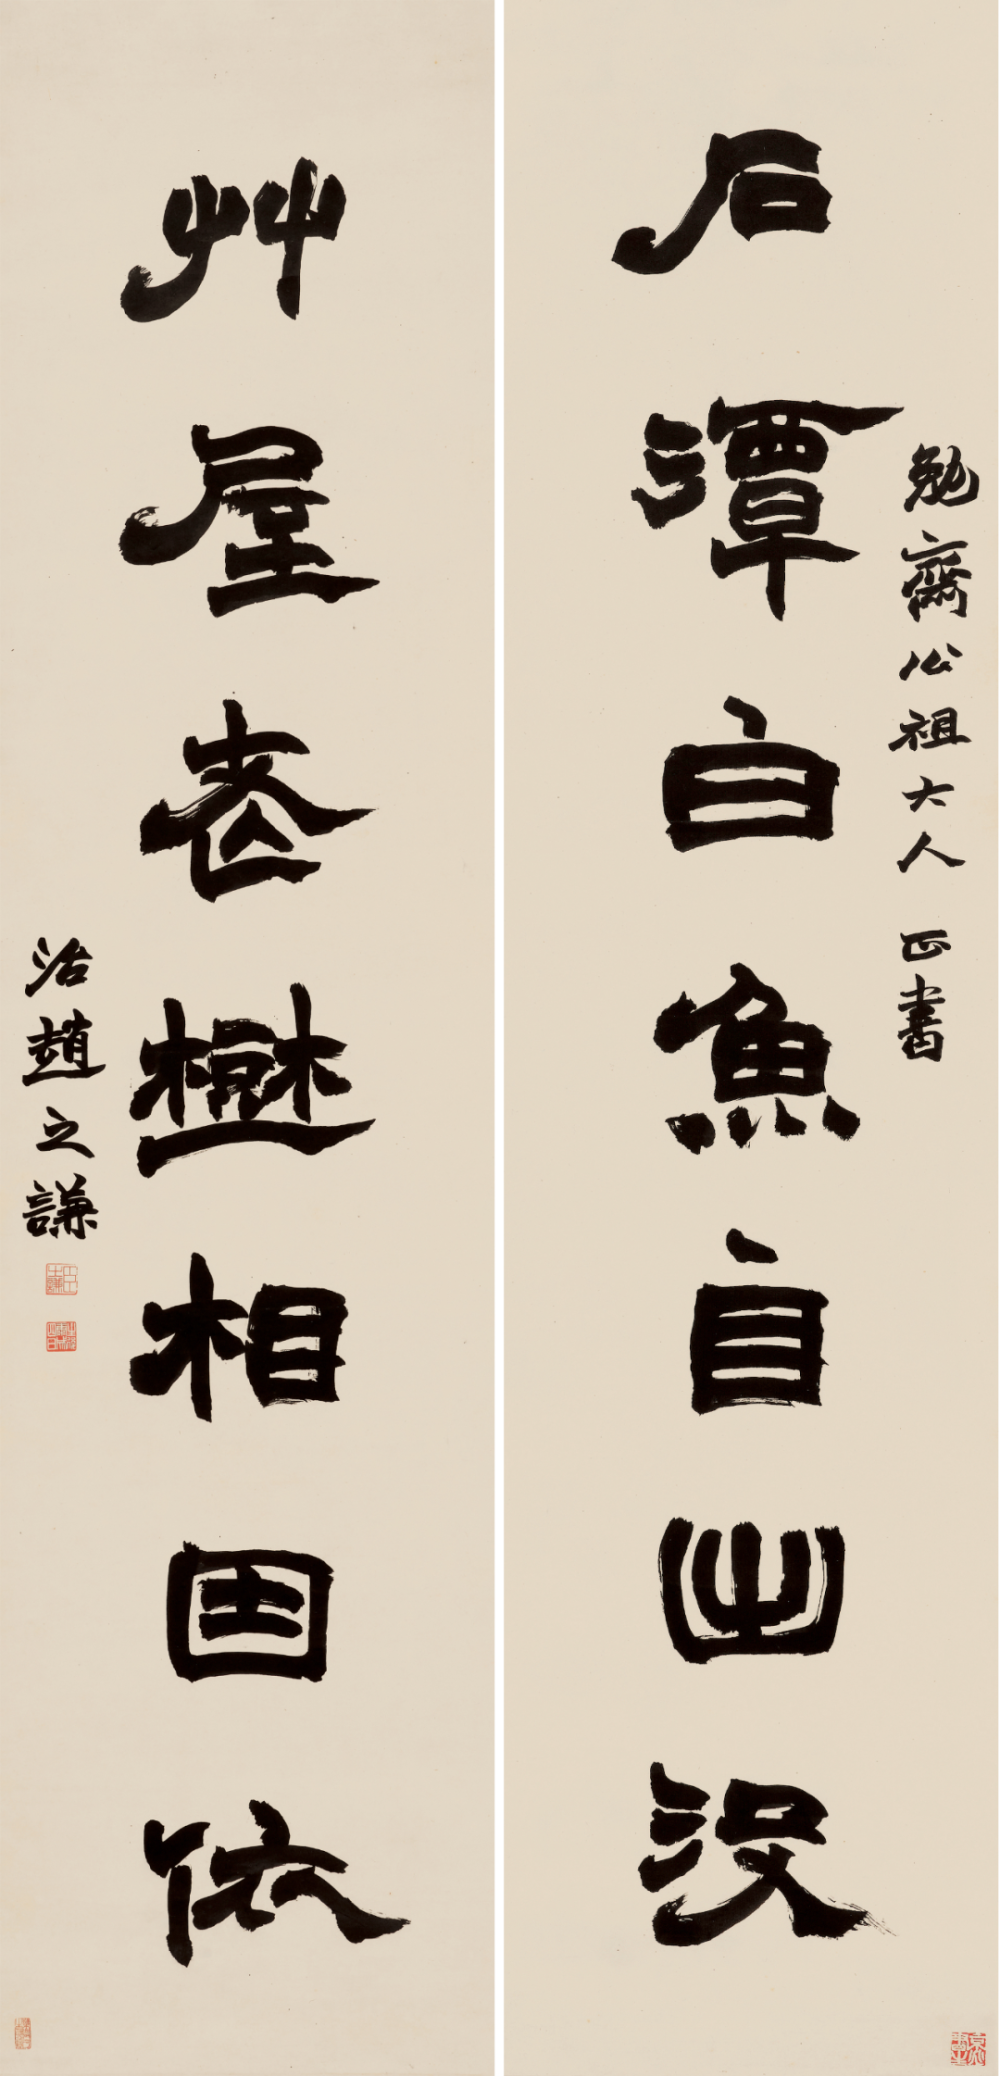 勉齋公祖大人 正書
石潭白魚自出沒
艸屋老相因依
治趙之謙